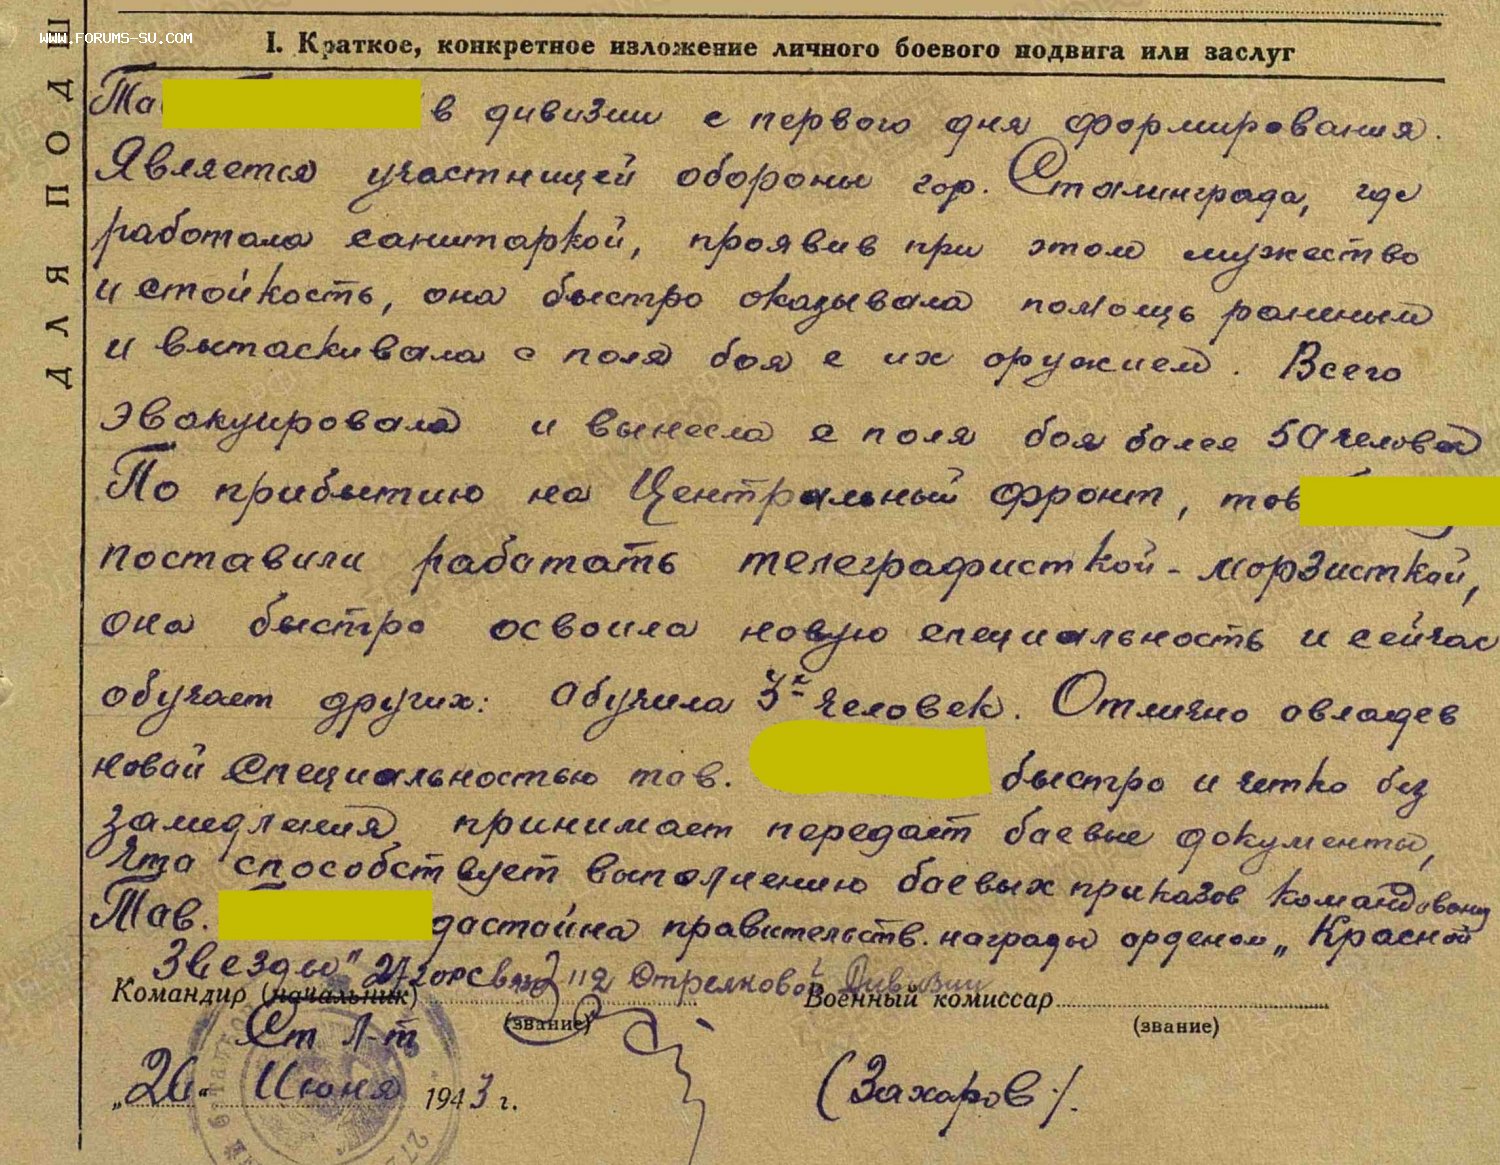 WWW.FORUMS-SU.COM
ДЛЯ ПОДШ
I. Краткое, конкретное изложение личного боевого подвига или заслуг
Тав в дивизии с первого дня формирования.
Является участницей обороны гор. Сталинграда, где
работала санитаркой, проявив при этом мужество
и стойкость, она быстро оказывала помощь раненым
и вытаскивала с поля боя с их оружием. Всего
эвакуировала и вынесла с поля боя более 50 человек
По прибытию на Центральный фронт, тов
поставили работать телеграфисткой-морзисткой,
она быстро освоила новую специальность и сейчас
обучает других: обучила 3х человек. Отлично овладев
новай специальностью тов. быстро и четко без
замедления принимает передает боевые документы,
что способствует выполнению боевых приказов командования
Тав. достойна правительств. награды орденом „Красной
Звезды" 112 Стрелковой Дивизии
Командир (начальник) Военный комиссар
Ст Л-т (звание) (звание)
„26" Июня 1943 г. (Захаров).